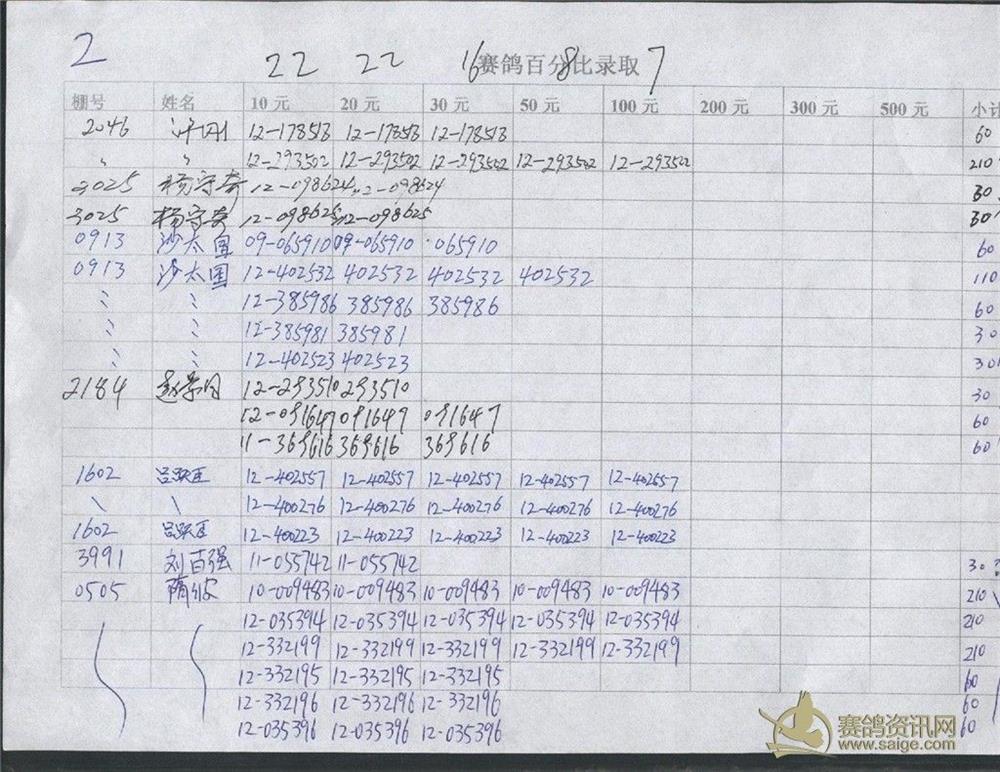 2
22 22 16 8 7
赛鸽百分比录取
棚号 姓名 10 元 20 元 30 元 50 元 100 元 200 元 300 元 500 元 小计
2046 许刚 12-178513 12-178513 12-178513 60
〃 〃 12-293502 12-293502 12-293502 12-293502 12-293502 210
3025 杨守奇 12-098624 12-098624 30
3025 杨守奇 12-098625 12-098625 30
0913 沙太国 09-065910 09-065910 065910 60
0913 沙太国 12-402532 402532 402532 402532 110
〃 〃 12-385986 385986 385986 60
〃 〃 12-385981 385981 30
〃 〃 12-402523 402523 30
2184 12-293510 293510 30
12-091647 091647 091647 60
11-369616 369616 369616 60
1602 吕跃臣 12-402557 12-402557 12-402557 12-402557 12-402557
\ \ 12-400276 12-400276 12-400276 12-400276 12-400276
1602 吕跃臣 12-400223 12-400223 12-400223 12-400223 12-400223
3991 刘百强 11-055742 11-055742 30
0505 10-009483 10-009483 10-009483 10-009483 10-009483 210
12-035394 12-035394 12-035394 12-035394 12-035394 210
12-332199 12-332199 12-332199 12-332199 12-332199 210
12-332195 12-332195 12-332195 60
12-332196 12-332196 12-332196 60
12-035396 12-035396 12-035396 60
赛鸽资讯网
www.saige.com